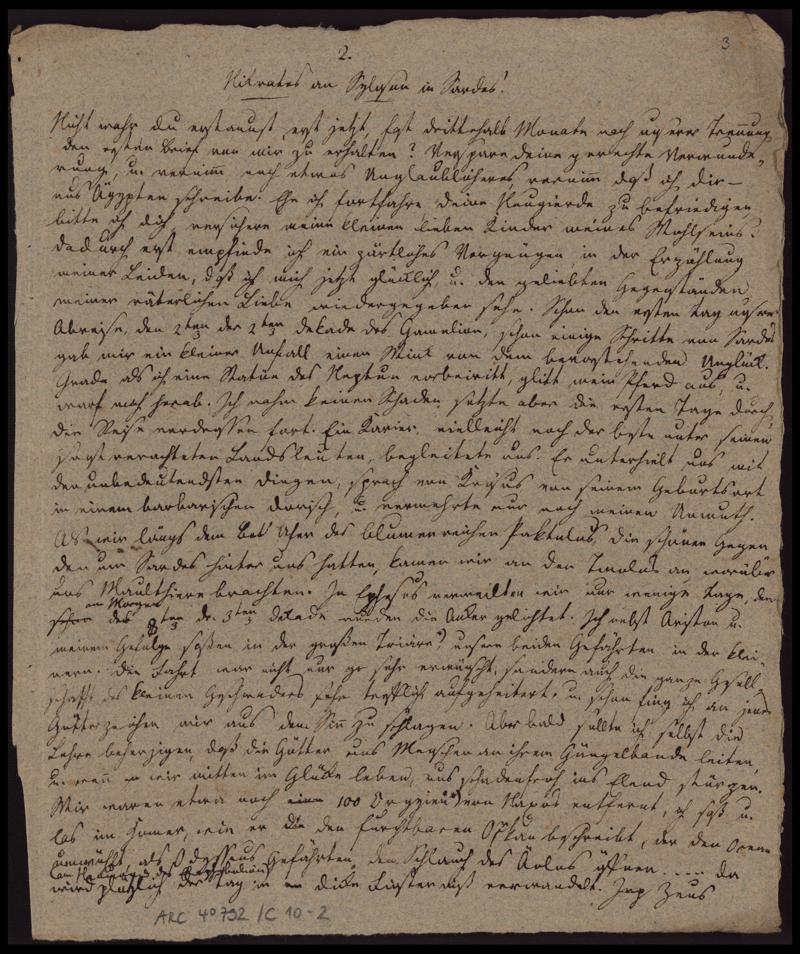 3
2.
Nikrates an Syloson in Sardes!
Nicht wahr du erstaunst, erst jetzt, fast drittehalb Monate nach unserer Trennung,
den ersten Brief von mir zu erhalten? Verspare deine gerechte Verwunde-
rung, u. vernimm noch etwas Unglaublicheres, vernimm daß ich dir –
aus Ägypten schreibe. Ehe ich fortfahre deine Neugierde zu befriedigen,
bitte ich dich, versichere meine kleinen lieben Kinder meines Wohlseins!
Dadurch erst empfinde ich ein zärtliches Vergnügen in der Erzählung
meiner Leiden, daß ich mich jetzt glücklich, u. den geliebten Gegenständen
meiner väterlichen Liebe wiedergegeben sehe. Schon den ersten Tag unserer
Abreise, den 2ten der 2ten Dekade des Gamelion, schon einige Schritte von Sardes
gab mir ein kleiner Unfall einen Wink von dem bevorstehenden Unglück.
Grade als ich eine Statue des Neptun vorbeiritt, glitt mein Pferd aus, u.
warf mich herab. Ich nahm keinen Schaden, setzte aber die ersten Tage durch
die Reise verdrossen fort. Ein Karier, vielleicht noch der beste unter seinen
sonst verachteten Landsleuten, begleitete uns. Er unterhielt uns mit
den unbedeutendsten Dingen, sprach von Krösus von seinem Geburtsort
in einem barbarischen dorisch, u. vermehrte nur noch meinen Unmuth.
Als wir längs dem Ufer des blumenreichen Paktolus, die schönen Gegen
den um Sardes hinter uns hatten, kamen wir an den Tmolus an, worüber
uns Maulthiere brachten. In Ephesos verweilten wir nur wenige Tage, den
am Morgen
schon des 8ten der 3ten Dekade wurden die Anker gelichtet. Ich nebst Ariston u.
meinem Gefolge saßen in der großen Triäre, unsere beiden Gefährten in der klei-
nern. Die Fahrt war nicht nur so sehr erwünscht, sondern auch die ganze Gesell
schaft des kleinen Geschwaders sehr trefflich aufgeheitert, u. schon fing ich an jene
Götterzeichen mir aus dem Sinn zu schlagen. Aber bald sollte ich selbst die
Lehre beherzigen, daß die Götter uns Menschen an ihrem Gängelbande leiten,
u. wenn wir mitten im Glücke leben, uns schadenfroh ins Elend stürzen.
Wir waren etwa noch 100 Orgyien von Naxos entfernt, ich saß u.
las im Homer, wie er den furchtbaren Orkan beschreibt, der den Ocean
umwühlt, als Odysseus Gefährten den Schlauch des Äolus öffnen. .... Da
wird plötzlich der Tag in eine dicke Finsterniß verwandelt. Zeus
ARC 4° 792 / C 10-2